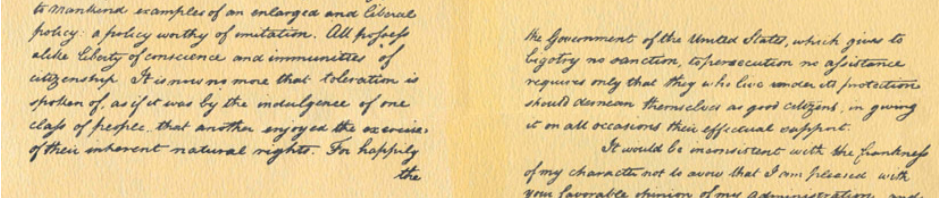 to mankind examples of an enlarged and liberal
policy: a policy worthy of imitation. All possess
alike liberty of conscience and immunities of
citizenship It is now no more that toleration is
spoken of, as if it was by the indulgence of one
class of people, that another enjoyed the exercise
of their inherent natural rights. For happily
the
the Government of the United States, which gives to
bigotry no sanction, to persecution no assistance
requires only that they who live under its protection
should demean themselves as good citizens, in giving
it on all occasions their effectual support.
It would be inconsistent with the frankness
of my character not to avow that I am pleased with
your favorable opinion of my administration, and